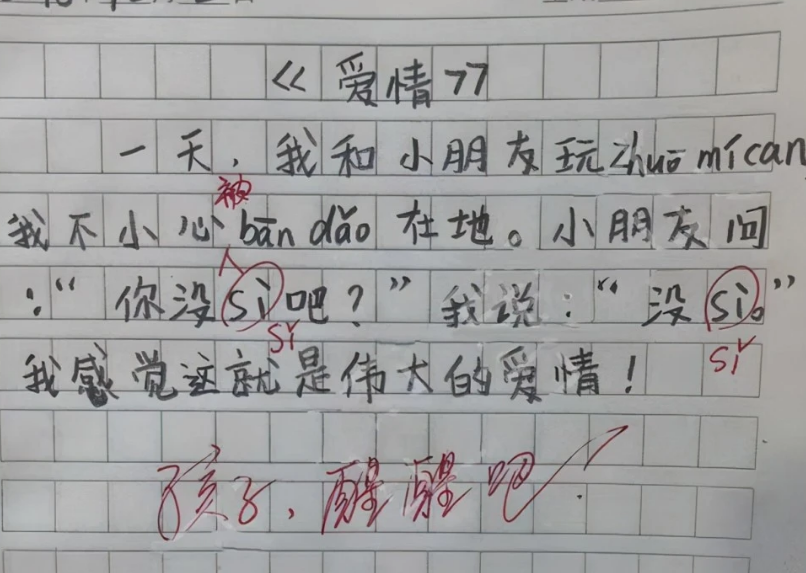 《爱情》
一天，我和小朋友玩zhuō mí cán
被
我不小心bān dǎo在地。小朋友问
：“你没sì吧？”我说：“没sì。”
sǐ
sǐ
我感觉这就是伟大的爱情！
孩子，醒醒吧！